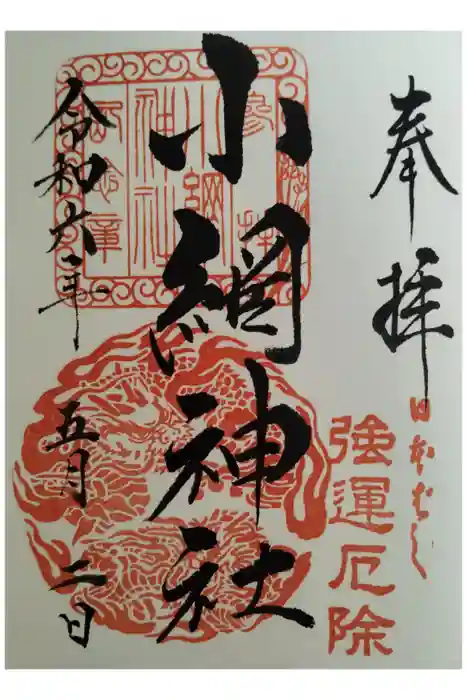 奉拝
日本ばし
強運厄除
小網神社
令和六年
五月
二日